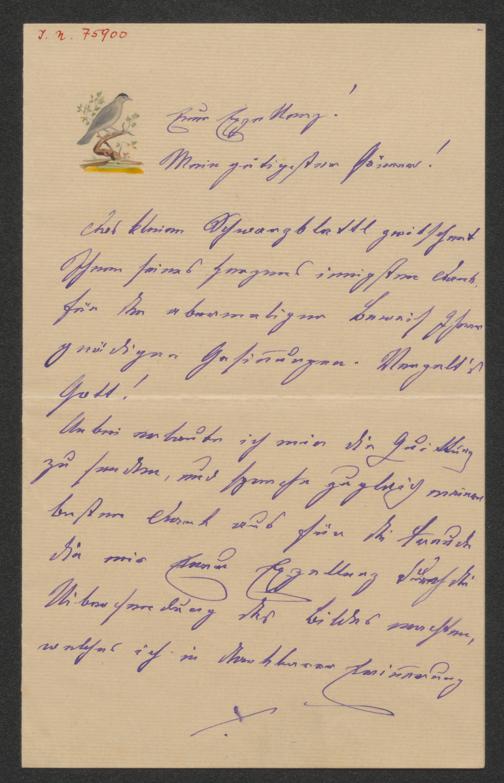 J. N. 75900
Euer Exzellenz!
Mein gütigster Gönner!
Das kleine Schwarzblattl zwitschert
Ihnen seines Herzens innigsten Dank,
für den abermaligen Beweis Ihrer
gnädigen Gesinnungen. Vergelt's
Gott!
Anbei erlaube ich mir die Quittung
zu senden, und spreche zugleich meinen
besten Dank aus für die Freude
die mir Euer Exzellenz durch die
Übersendung des Bildes machten,
welches ich in dankbarer Erinnerung